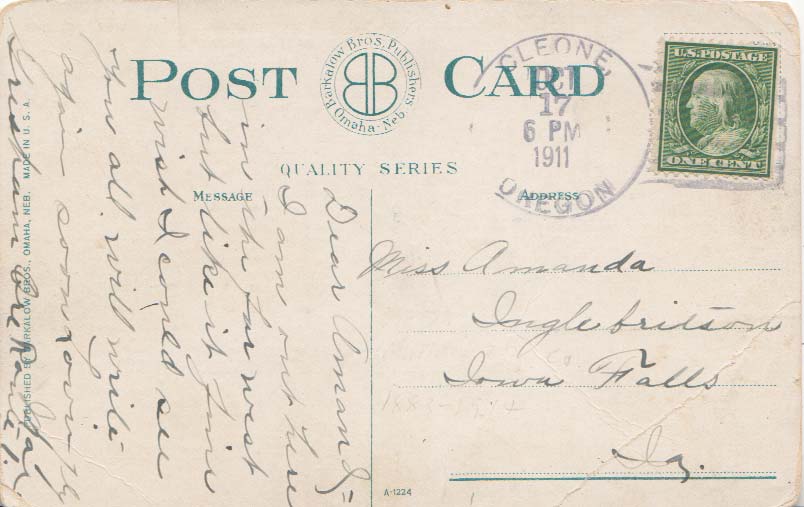 POST CARD
Barkalow Bros. Publishers
Omaha, Neb.
QUALITY SERIES
MESSAGE
ADDRESS
CLEONE,
OCT
17
6 PM
1911
OREGON
U.S. POSTAGE
ONE CENT
Dear Amanda=
I am out here
in the far west
but like it fine
wish I could see
you all will write
again soon
Miss Amanda
Inglebritson
Iowa Falls
Ia.
A-1224
PUBLISHED BY BARKALOW BROS., OMAHA, NEB. MADE IN U.S.A.